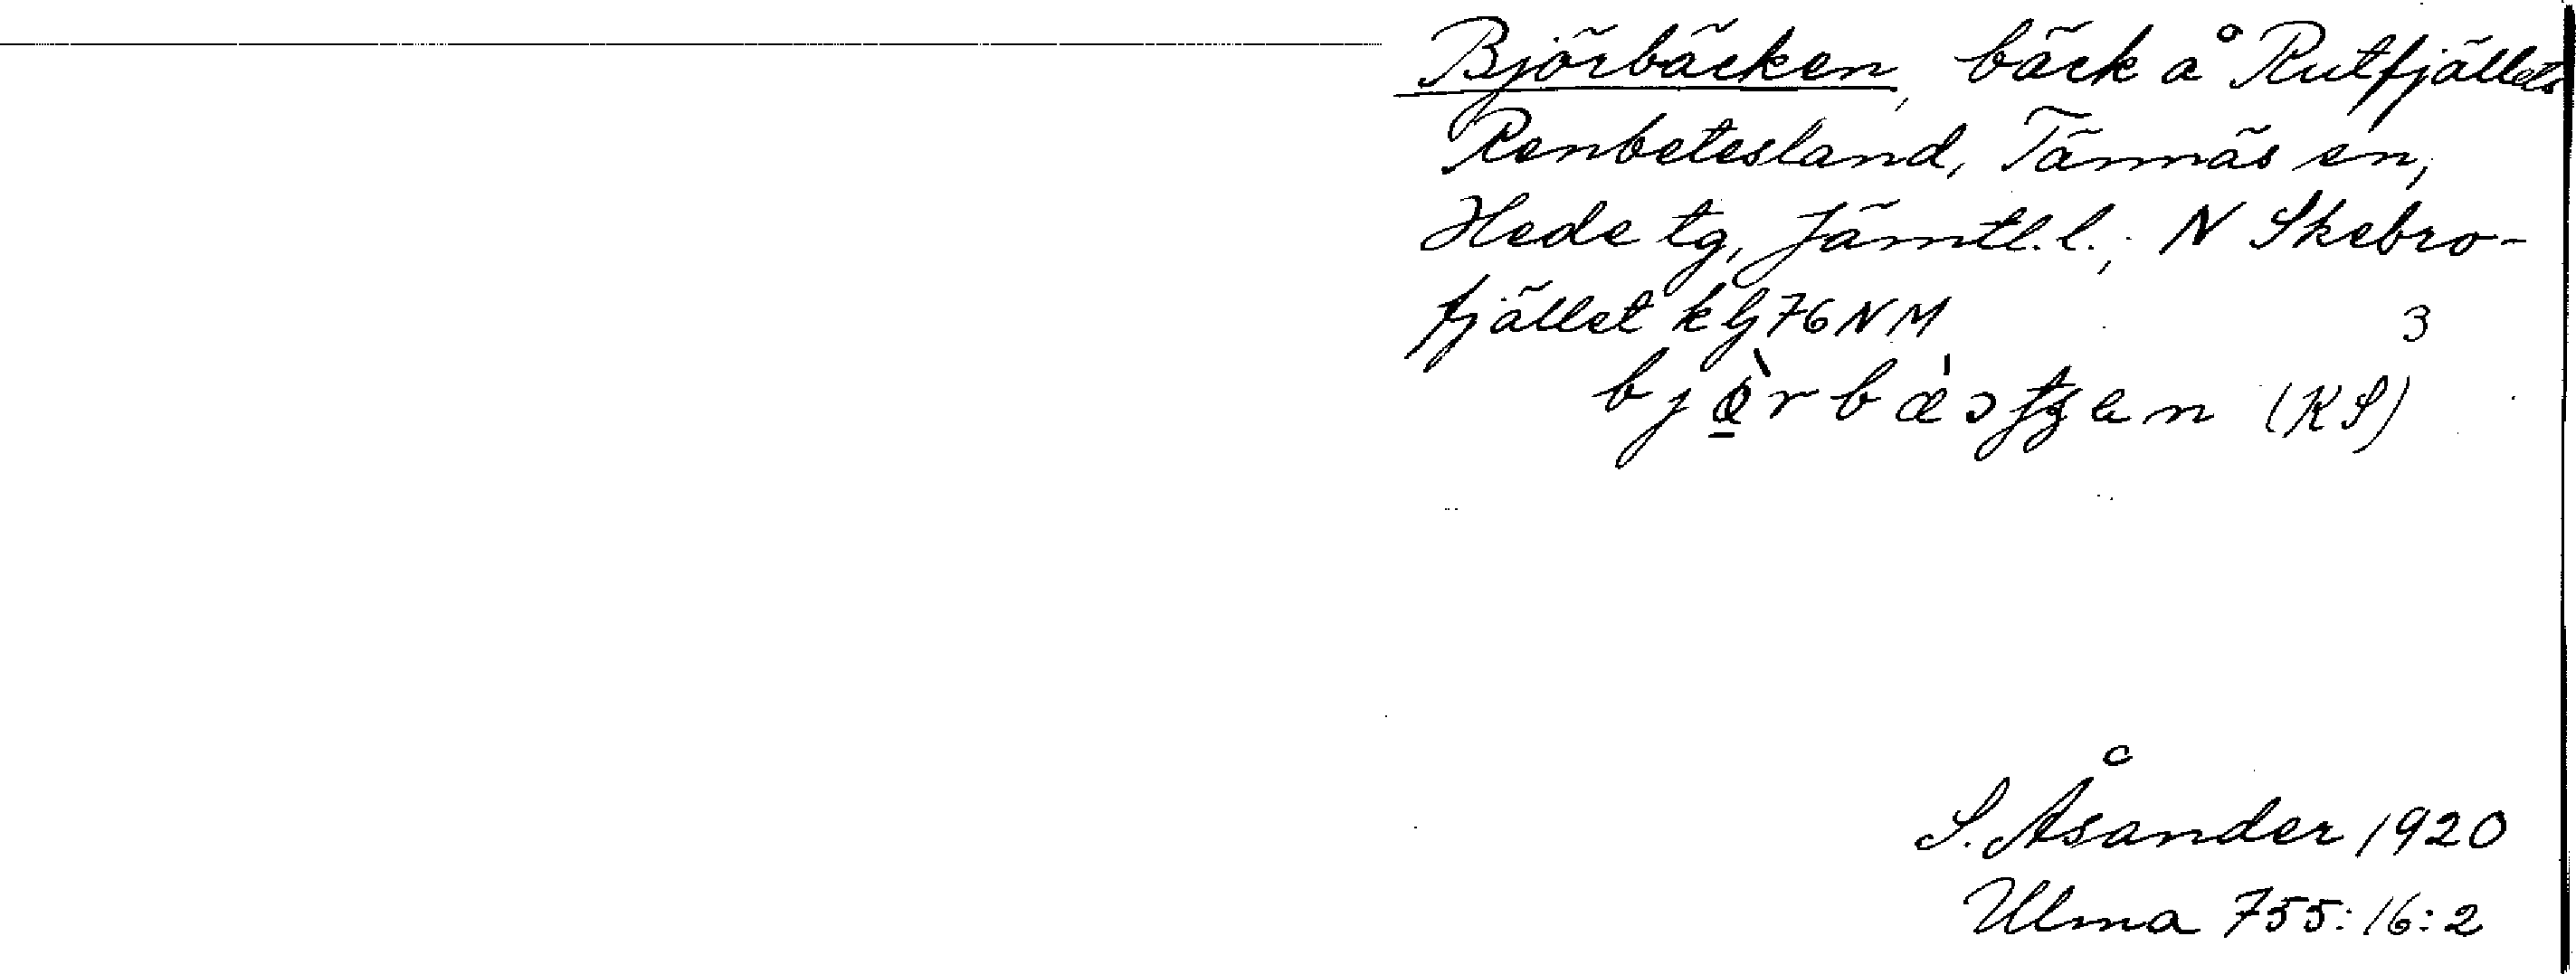 Björbäcken, bäck å Rutfjällets
Renbetesland, Tännäs sn,
Hede tg, Jämtl.l.; N Skebro-
fjället kG76NM 3
(KS)
S. Åsander 1920
Ulma 755:16:2